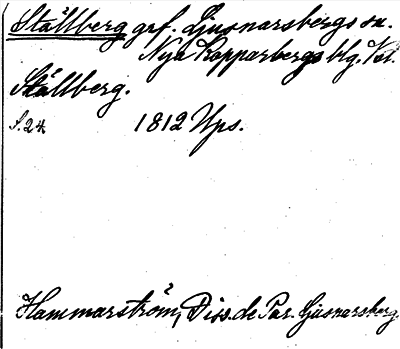 Ställberg grf. Ljusnarsbergs sn.
Nya Kopparbergs blg. Vstl.
Ställberg.
S. 24 1812 Ups.
Hammarström, Diss. de Par. Ljusnarsberg